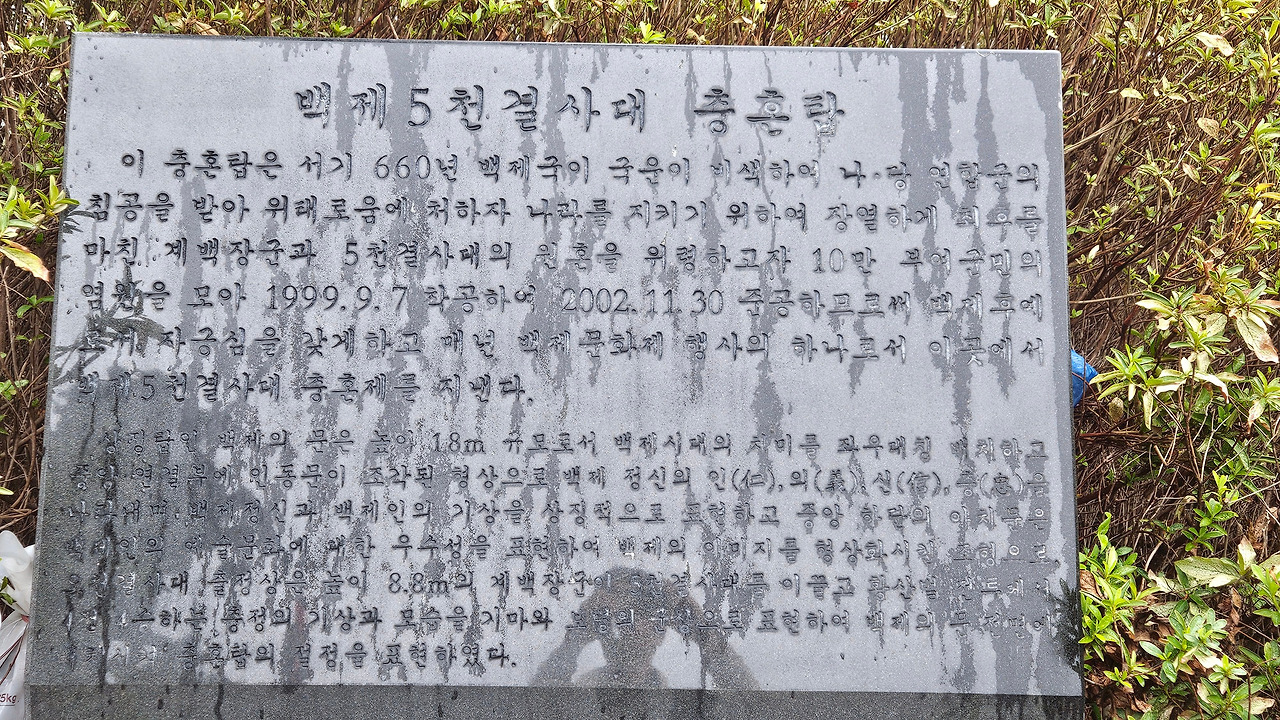 백제5천결사대 충혼탑
이 충혼탑은 서기 660년 백제국이 국운이 비색하여 나·당 연합군의
침공을 받아 위태로움에 처하자 나라를 지키기 위하여 장열하게 최후를
마친 계백장군과 5천결사대의 원혼을 위령하고자 10만 부여군민의
염원을 모아 1999.9.7 착공하여 2002.11.30 준공하므로써 백제후예
자긍심을 갖게하고 매년 백제문화제 행사의 하나로서 이곳에서
백제5천결사대 충혼제를 지낸다.
상징탑인 백제의 문은 높이 18m 규모로서 백제시대의 치미를 좌우대칭 배치하고
중앙 연결부에 인동문이 조각된 형상으로 백제 정신의 인(仁),의(義),신(信),충(忠)을
나타내며, 백제정신과 백제인의 기상을 상징적으로 표현하고 중앙 하단의 아치문은
백제인의 예술문화에 대한 우수성을 표현하여 백제의 이미지를 형상화시킨 조형으로
결사대 출정상은 높이 8.8m의 계백장군이 5천결사대를 이끌고 황산벌 전투에서
충정의 기상과 모습을 기마와 군상으로 표현하여 백제의 문 전면에
충혼탑의 절정을 표현하였다.
5kg.